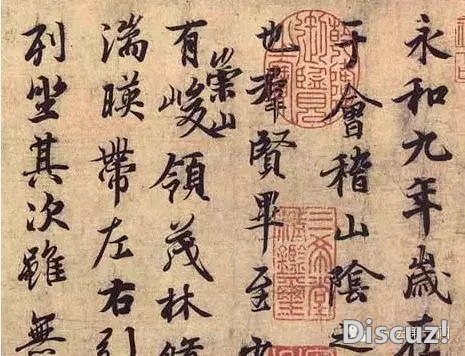 永和九年歲在
于會稽山陰之
也羣賢畢至少
有崇山峻領茂林脩
湍暎帶左右引
列坐其次雖無
三希堂
精鑑璽
Discuz!